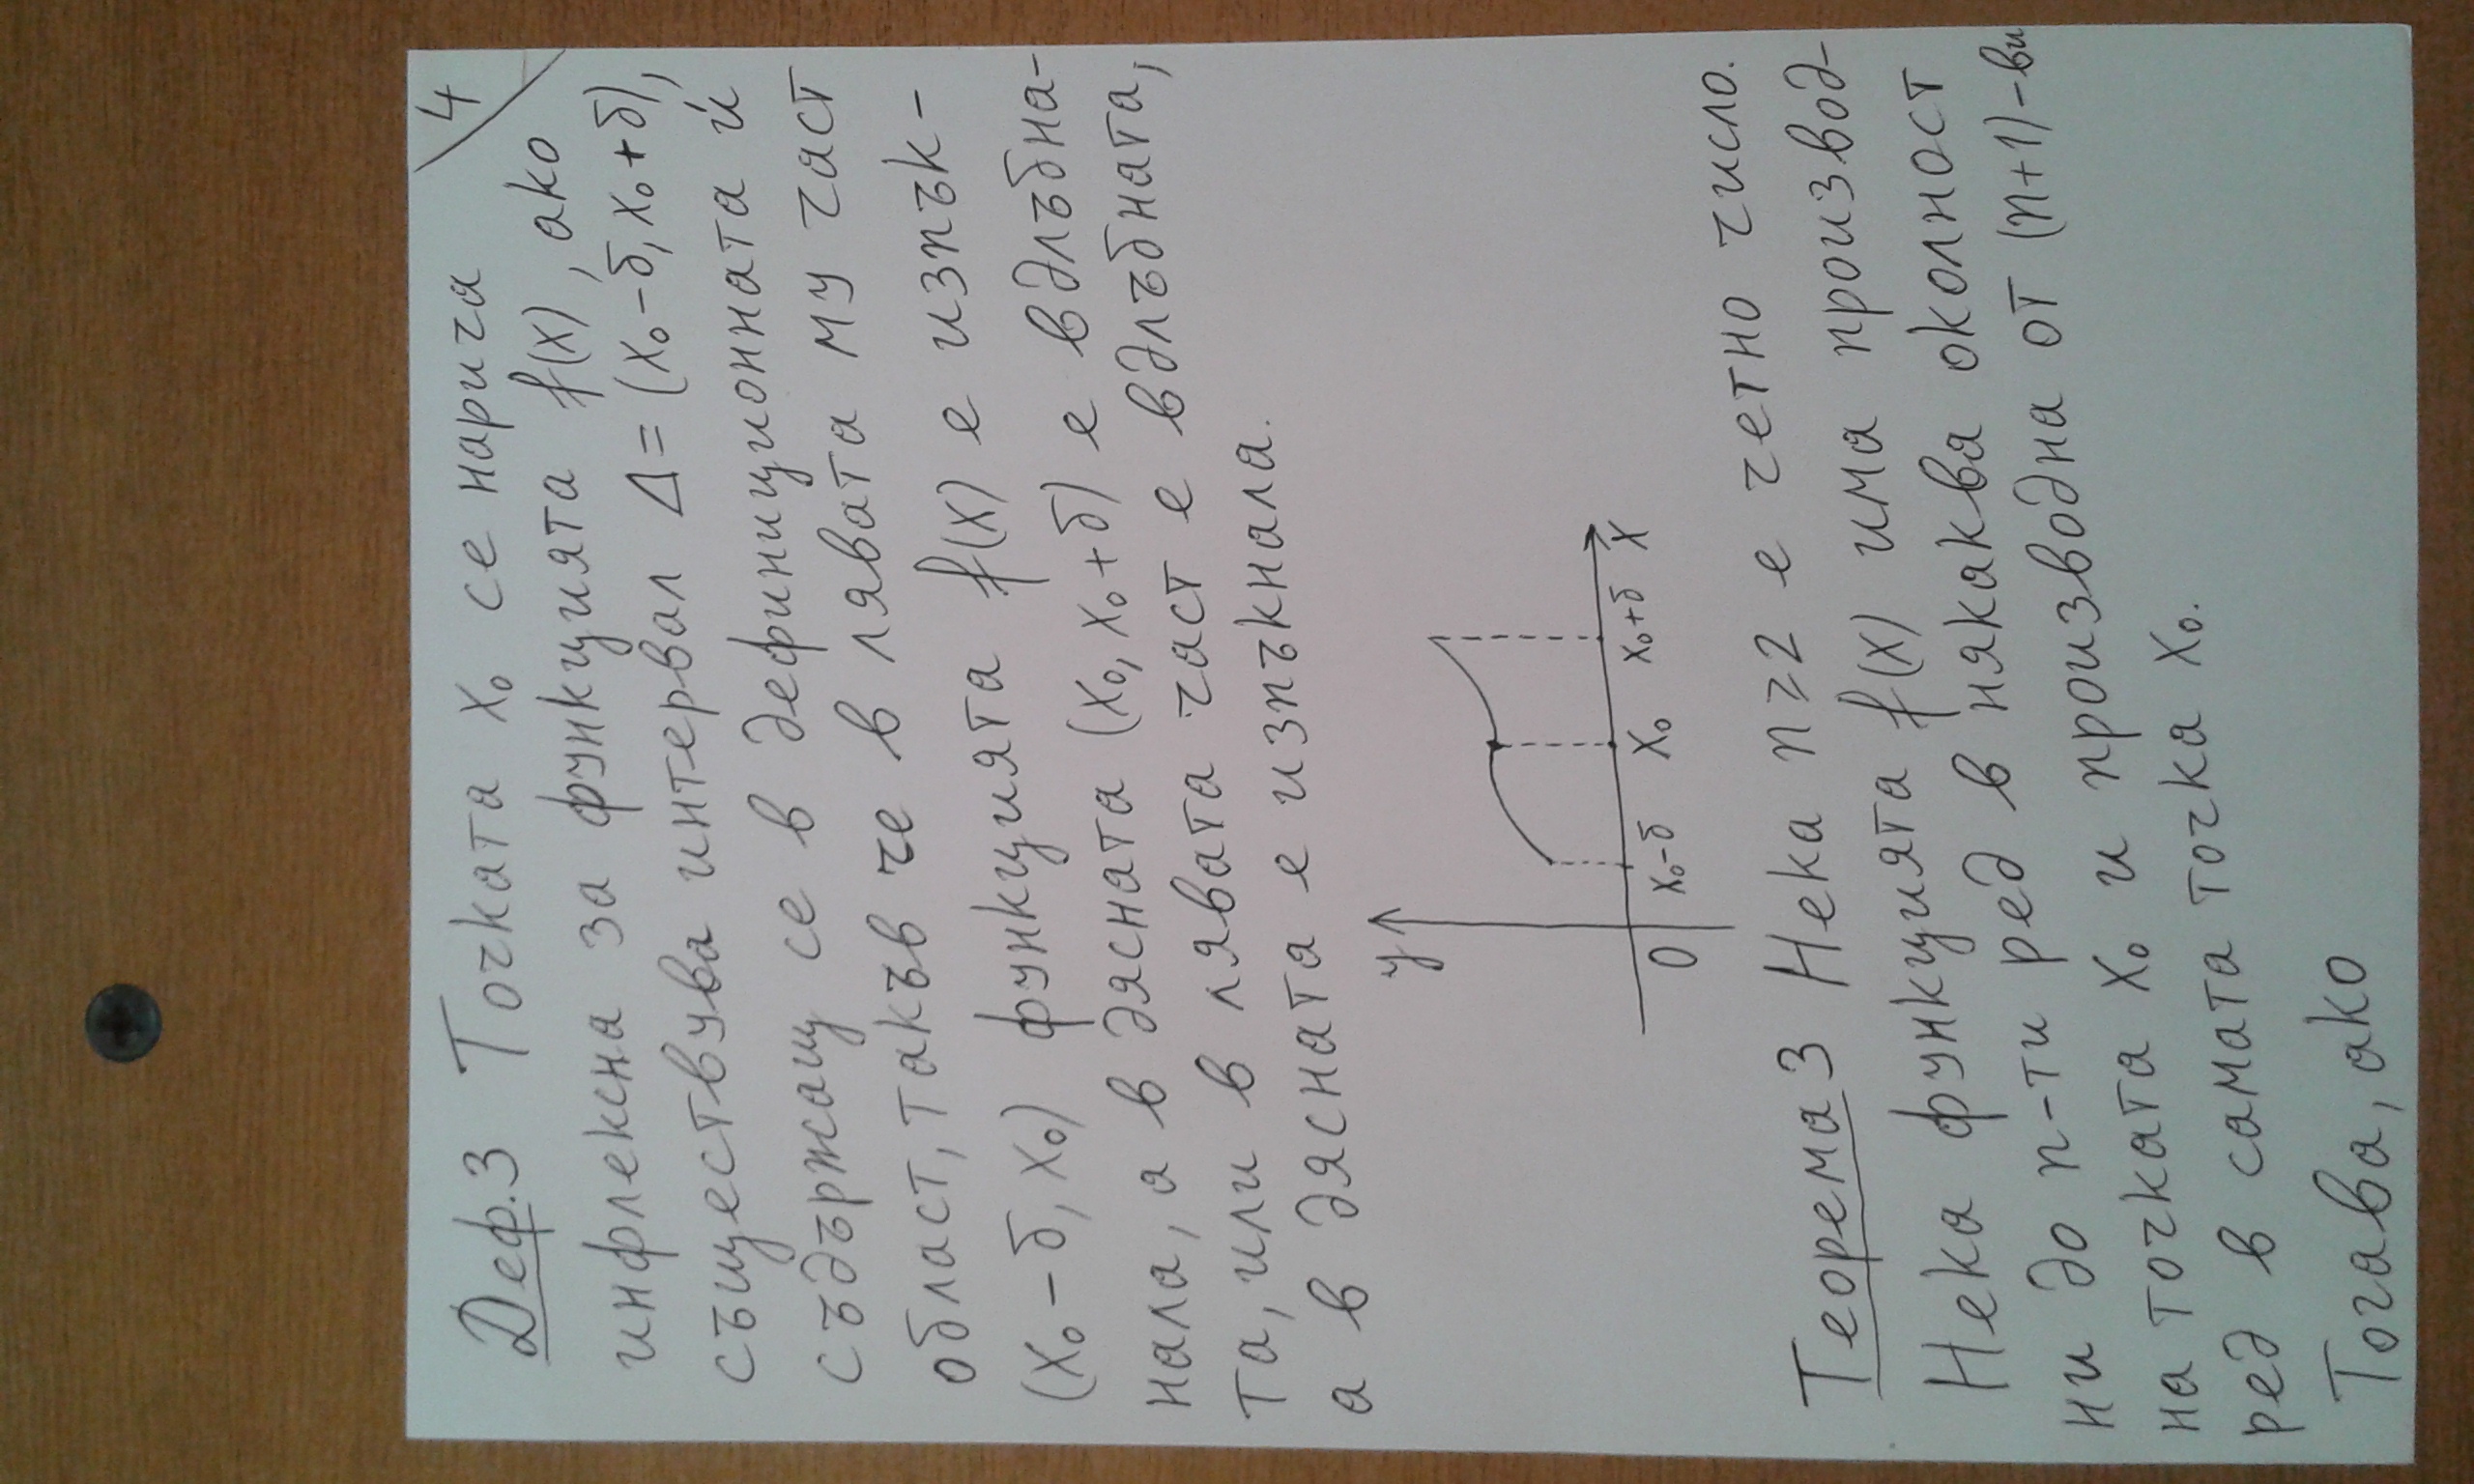 4
Деф.3 Точката x₀ се нарича
инфлексна за функцията f(x), ако
съществува интервал Δ = (x₀-δ, x₀+δ),
съдържащ се в дефиниционната ѝ
област, такъв че в лявата му част
(x₀-δ, x₀) функцията f(x) е изпък-
нала, а в дясната (x₀, x₀+δ) е вдлъбна-
та, или в лявата част е вдлъбната,
а в дясната е изпъкнала.
y
0 x₀-δ x₀ x₀+δ x
Теорема 3 Нека n≥2 е четно число.
Нека функцията f(x) има производ-
ни до n-ти ред в някаква околност
на точката x₀ и производна от (n+1)-ви
ред в самата точка x₀.
Тогава, ако